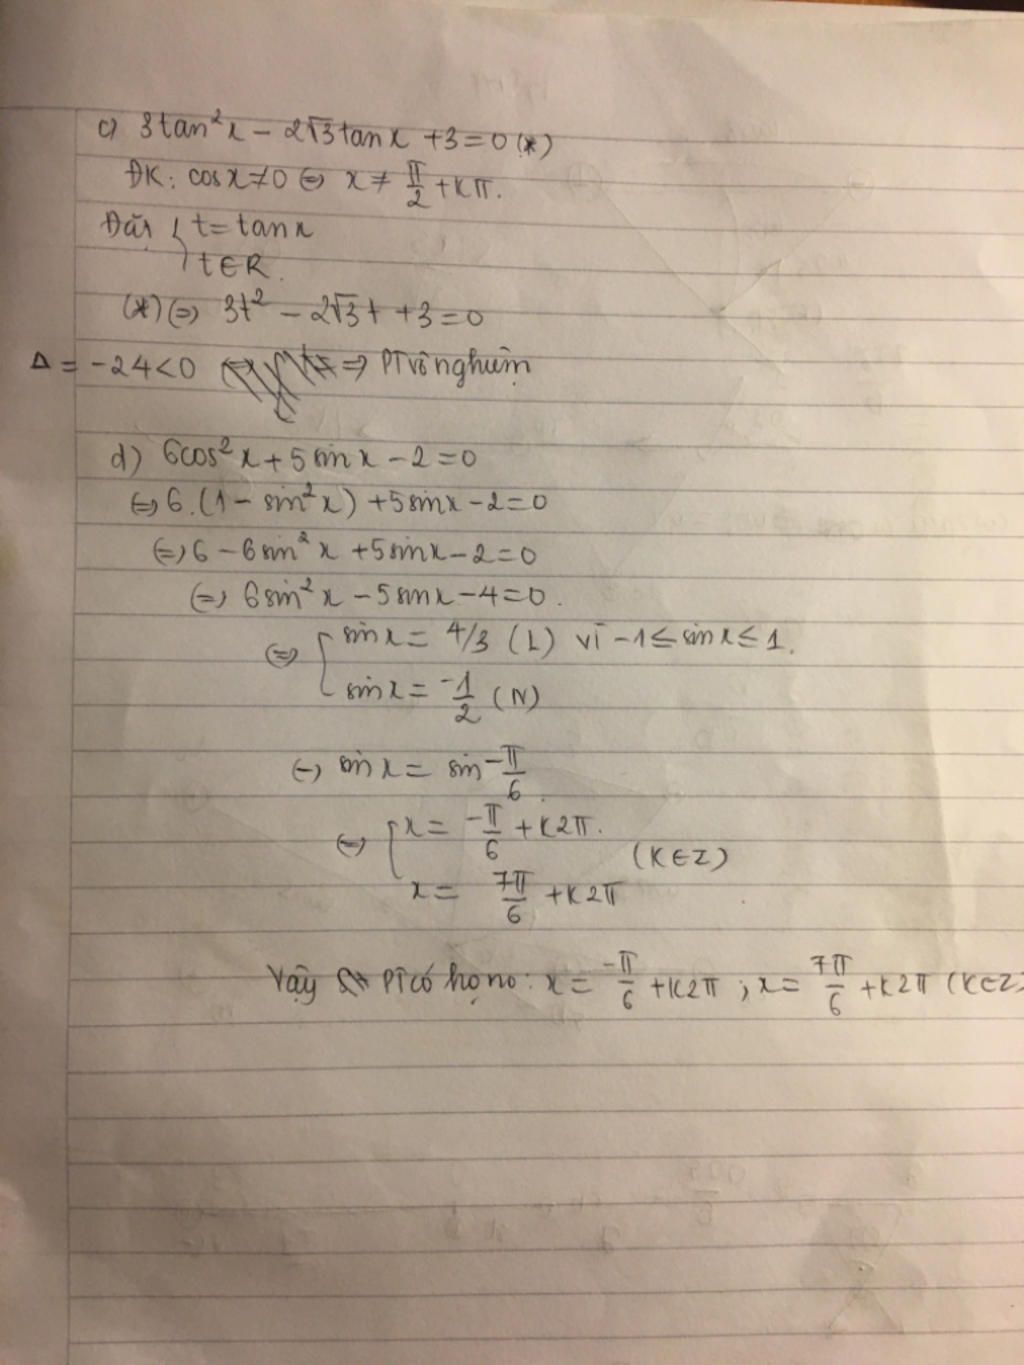 c) 3tan²x - 2√3tanx + 3 = 0 (*)
ĐK: cosx ≠ 0 ⇔ x ≠ π/2 + kπ.
Đặt { t = tanx
t ∈ R.
(*) ⇔ 3t² - 2√3t + 3 = 0
Δ = -24 < 0 ⇒ PT vô nghiệm
d) 6cos²x + 5sinx - 2 = 0
⇔ 6.(1 - sin²x) + 5sinx - 2 = 0
⇔ 6 - 6sin²x + 5sinx - 2 = 0
⇔ 6sin²x - 5sinx - 4 = 0.
⇔ [ sinx = 4/3 (L) vì -1 ≤ sinx ≤ 1.
sinx = -1/2 (N)
(-) sinx = sin -π/6.
⇔ [ x = -π/6 + k2π.
(k∈Z)
x = 7π/6 + k2π
Vậy PT có họ no: x = -π/6 + k2π ; x = 7π/6 + k2π (k∈Z)